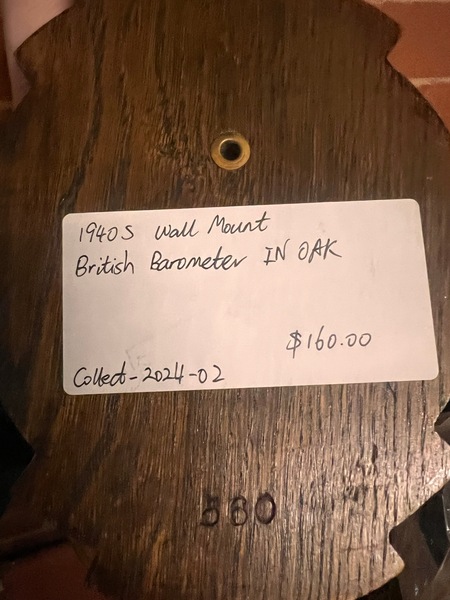 1940s Wall Mount
British Barometer IN OAK
$160.00
Collect-2024-02
560